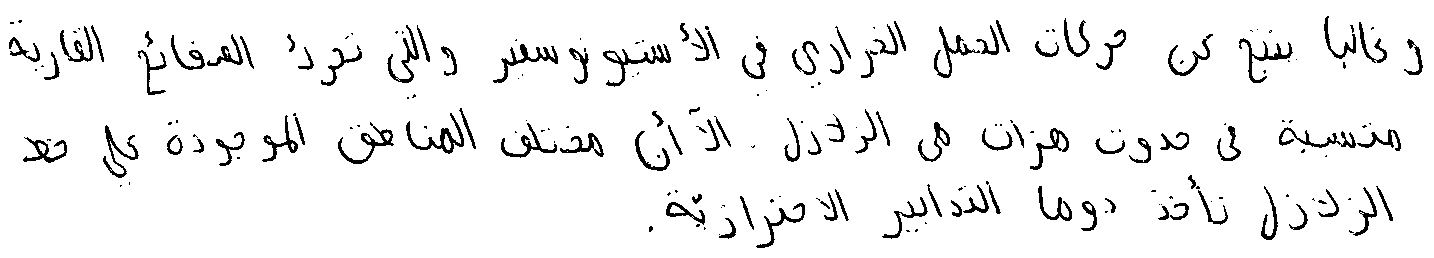 و غالبا ينتج عن حركات الحمل الحراري في الأستينوسفير والتي تحرك الصفائح القارية
متسببة في حدوث هزات هي الزلازل. الآ أن مختلف المناطق الموجودة على خط
الزلازل تأخذ دوما التدابير الاحترازيّة.